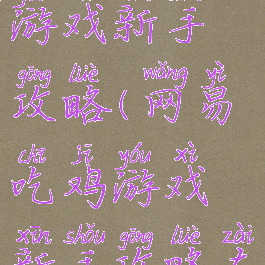 游戏新手
gōng lüè wǎng yì
攻略(网易
chī jī yóu xì
吃鸡游戏
xīn shǒu gōng lüè zài